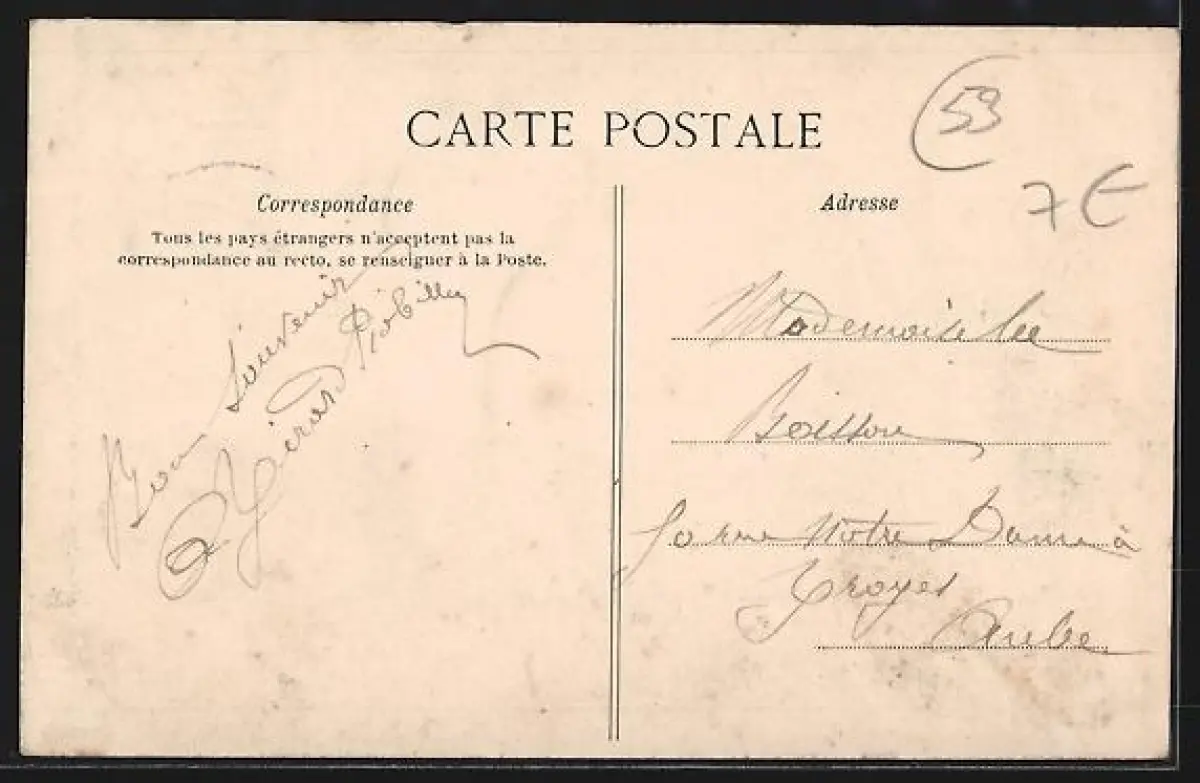 CARTE POSTALE
53
7 €
Correspondance
Tous les pays étrangers n'acceptent pas la
correspondance au recto, se renseigner à la Poste.
Bon Souvenir
Adresse
Mademoiselle
Boisson
rue Notre Dame à
Troyes
Aube